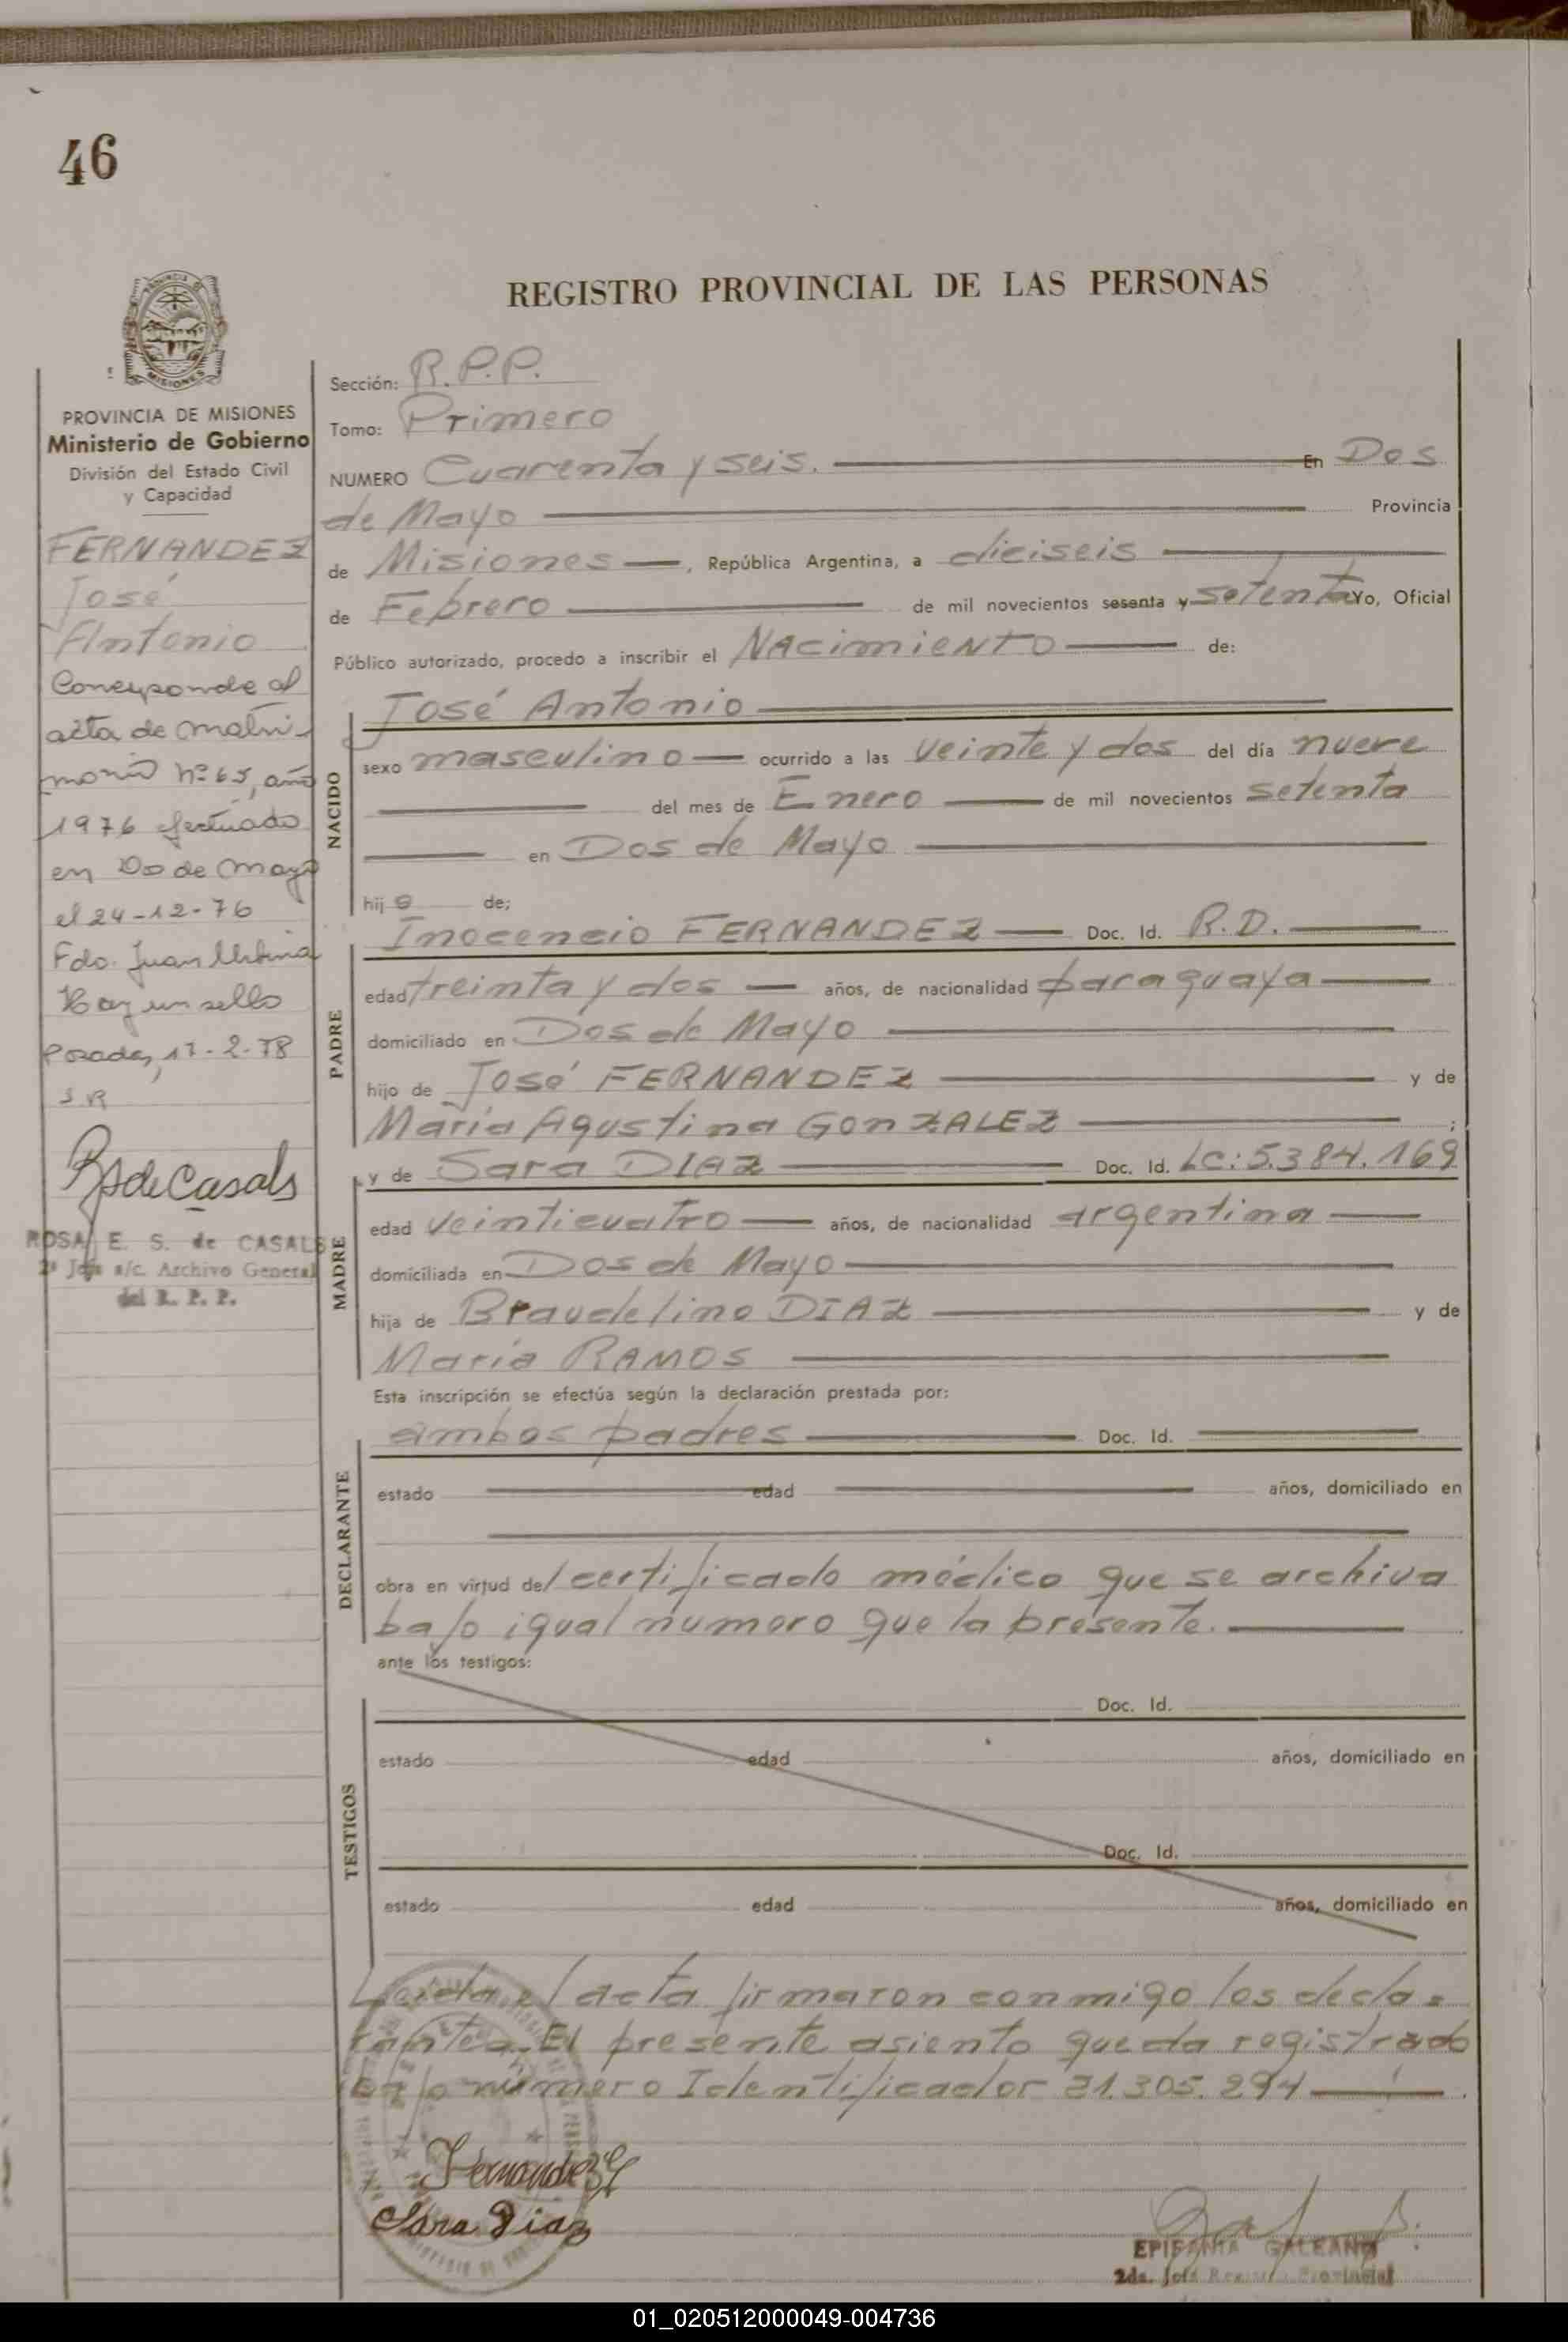 46
REGISTRO PROVINCIAL DE LAS PERSONAS
MISIONES
PROVINCIA DE MISIONES
Ministerio de Gobierno
División del Estado Civil
y Capacidad
FERNANDEZ
José
Antonio
Corresponde al
acta de matri-
monio Nº 65, año
1976 efectuado
en Dos de Mayo
el 24-12-76
Fdo. Juan Urbina
Hay un sello
Posadas, 17-2-78
RS de Casals
ROSA E. S. de CASALS
2ª Jefe a/c. Archivo General
del R. P. P.
Sección: R.P.P.
Tomo: Primero
NUMERO Cuarenta y seis. En Dos
de Mayo Provincia
de Misiones, República Argentina, a dieiseis
de Febrero de mil novecientos sesenta y setenta Yo, Oficial
Público autorizado, procedo a inscribir el NACimiENTO de:
NACIDO
José Antonio
sexo masculino ocurrido a las veinte y dos del día nueve
del mes de Enero de mil novecientos setenta
en Dos de Mayo
hijo de;
PADRE
Inocencio FERNANDEZ Doc. Id. R.D.
edad treinta y dos años, de nacionalidad paraguaya
domiciliado en Dos de Mayo
hijo de José FERNANDEZ y de
María Agustina GonZALEZ ;
MADRE
y de Sara DIAZ Doc. Id. LC: 5.384.169
edad veinticuatro años, de nacionalidad argentina
domiciliada en Dos de Mayo
hija de Braudelino DIAZ y de
María RAMOS
Esta inscripción se efectúa según la declaración prestada por:
DECLARANTE
ambos padres Doc. Id.
estado edad años, domiciliado en
obra en virtud del certificado médico que se archiva
bajo igual número que la presente.
ante los testigos:
TESTIGOS
Doc. Id.
estado edad años, domiciliado en
Doc. Id.
estado edad años, domiciliado en
Leída el acta firmaron conmigo los decla=
rantes. El presente asiento queda registrado
bajo número Identificador 21.305.294
Fernandez
Sara Diaz
EPIFANIA GALEANO
2da. Jefe Provincial
01_020512000049-004736